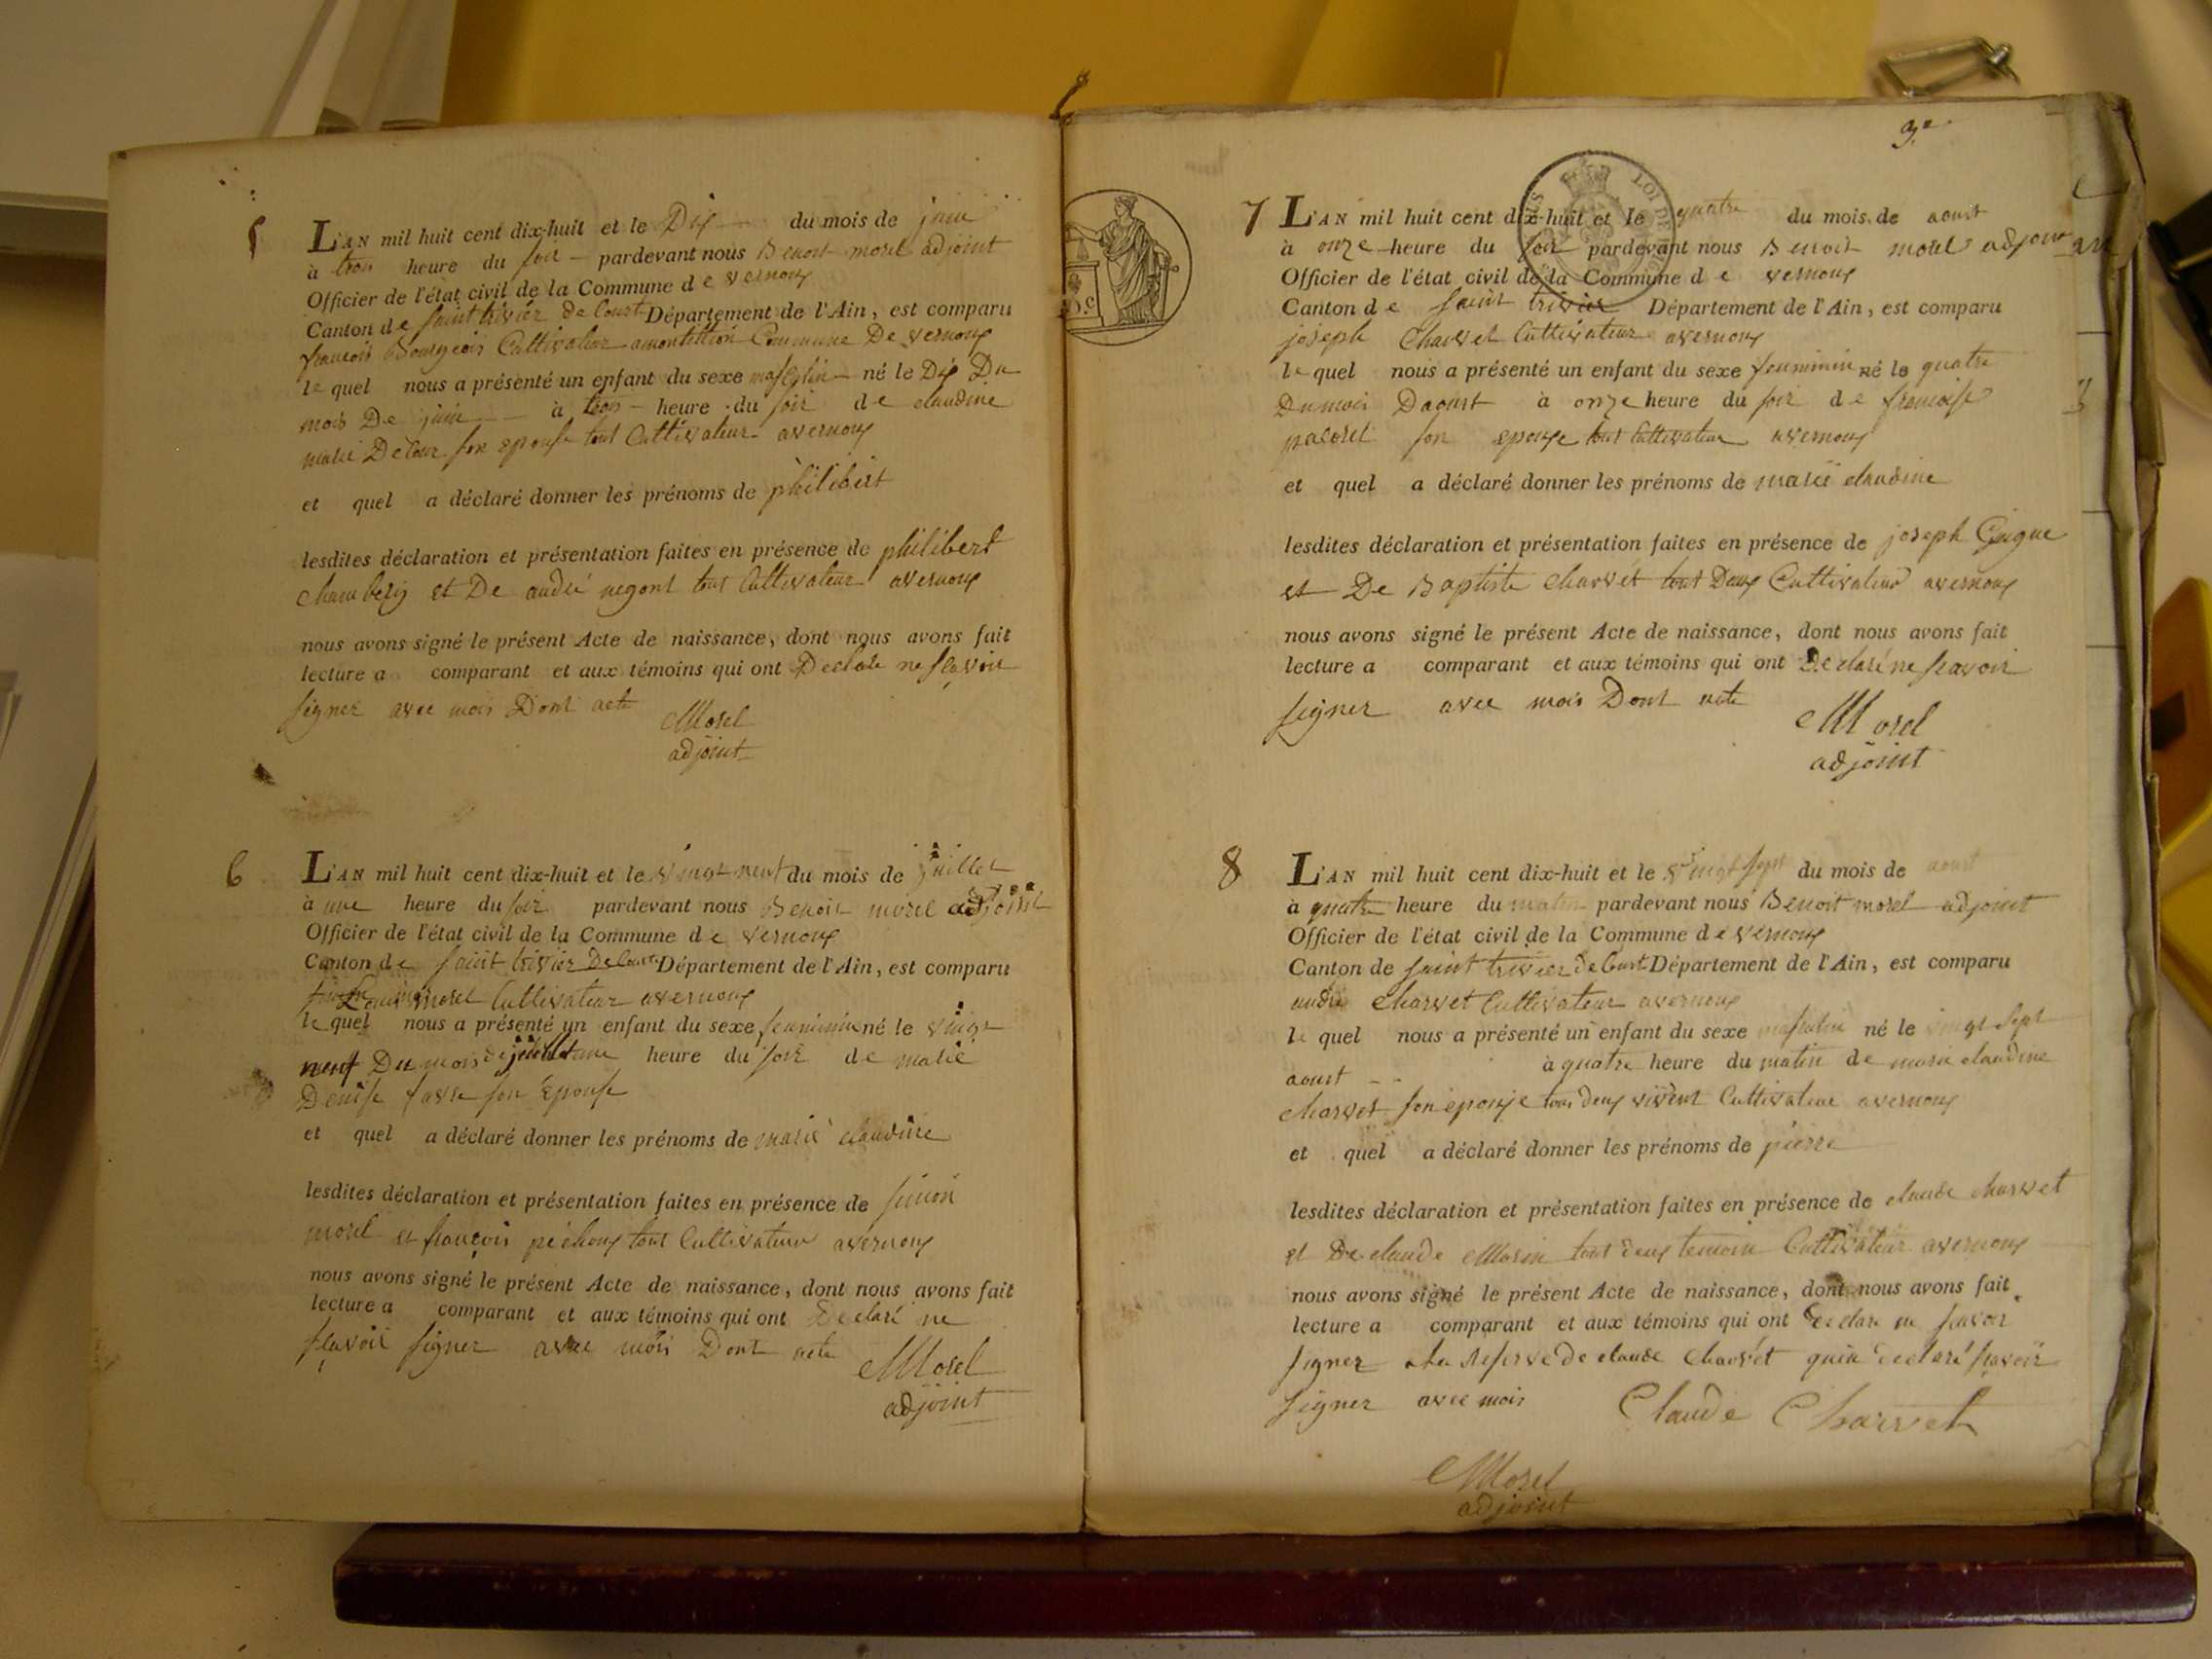 5
L'AN mil huit cent dix-huit et le Dix du mois de juin
à trois heure du soir pardevant nous Benoit morel adjoint
Officier de l'état civil de la Commune de vernoux
Canton de saint trivier de Court Département de l'Ain, est comparu
francois Bourgeois Cultivateur Commune De vernoux
le quel nous a présenté un enfant du sexe né le Dix Du
mois De juin à trois heure du soir de claudine
marie son epouse tout Cultivateur avernoux
et quel a déclaré donner les prénoms de philibert
lesdites déclaration et présentation faites en présence de philibert
et De tout Cultivateur avernoux
nous avons signé le présent Acte de naissance, dont nous avons fait
lecture a comparant et aux témoins qui ont Declare ne scavoir
signer avec mois Dont acte
Morel
adjoint
6
L'AN mil huit cent dix-huit et le vingt neuf du mois de juillet
à une heure du soir pardevant nous Benoit morel adjoint
Officier de l'état civil de la Commune de vernoux
Canton de saint trivier De Court Département de l'Ain, est comparu
morel Cultivateur avernoux
le quel nous a présenté un enfant du sexe feminin né le vingt
neuf Du mois de heure du soir de marie
Denise favre son Epouse
et quel a déclaré donner les prénoms de marie claudine
lesdites déclaration et présentation faites en présence de simon
morel et francois pichoux tout Cultivateur avernoux
nous avons signé le présent Acte de naissance, dont nous avons fait
lecture a comparant et aux témoins qui ont Declaré ne
scavoir signer avec mois Dont acte
Morel
adjoint
3.e
7
L'AN mil huit cent dix-huit et le quatre du mois de aoust
à onze heure du soir pardevant nous Benoit morel adjoint
Officier de l'état civil de la Commune de vernoux
Canton de saint trivier Département de l'Ain, est comparu
joseph Charvet Cultivateur avernoux
le quel nous a présenté un enfant du sexe feuminin né le quatre
Du mois Daoust à onze heure du soir de
son epouse tout Cultivateur avernoux
et quel a déclaré donner les prénoms de marie claudine
lesdites déclaration et présentation faites en présence de joseph
et De Baptiste Charvet tout Deux Cultivateur avernoux
nous avons signé le présent Acte de naissance, dont nous avons fait
lecture a comparant et aux témoins qui ont Declaré ne scavoir
signer avec mois Dont acte
Morel
adjoint
8
L'AN mil huit cent dix-huit et le vingt sept du mois de aoust
à quatre heure du matin pardevant nous Benoit morel adjoint
Officier de l'état civil de la Commune de vernoux
Canton de saint trivier de Court Département de l'Ain, est comparu
andre Charvet Cultivateur avernoux
le quel nous a présenté un enfant du sexe masculin né le vingt sept
aoust à quatre heure du matin de marie claudine
charvet son epouse tous deux vivent Cultivateur avernoux
et quel a déclaré donner les prénoms de pierre
lesdites déclaration et présentation faites en présence de claude charvet
et De claude Morin tout deux temoin Cultivateur avernoux
nous avons signé le présent Acte de naissance, dont nous avons fait
lecture a comparant et aux témoins qui ont declare ne scavoir
signer a la reserve de claude Charvet qui a declaré scavoir
signer avec mois
Claude Charvet
Morel
adjoint